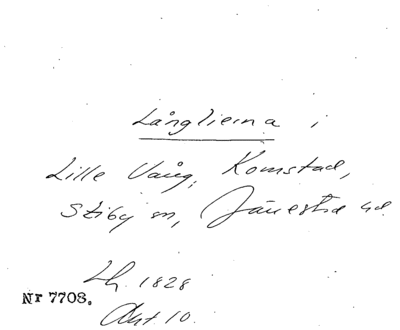 Långlierna i
Lille Vång, Komstad,
Stiby sn, Järrestad hd.
Lh. 1828
Nr 7708.
Akt. 10.